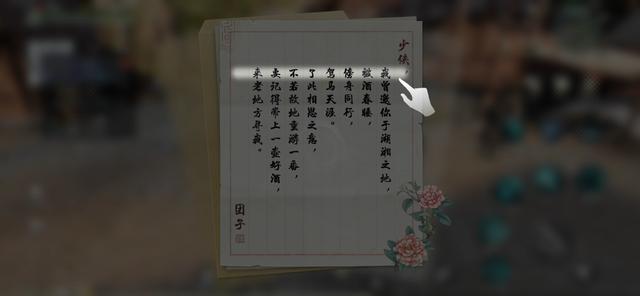 少侠，
我曾邀你于湖湘之地，
酒春
舟同行，
驾马天涯。
了此相思之意，
不若故地重游一番，
要记得带上一壶好酒，
来老地方寻我。
团子